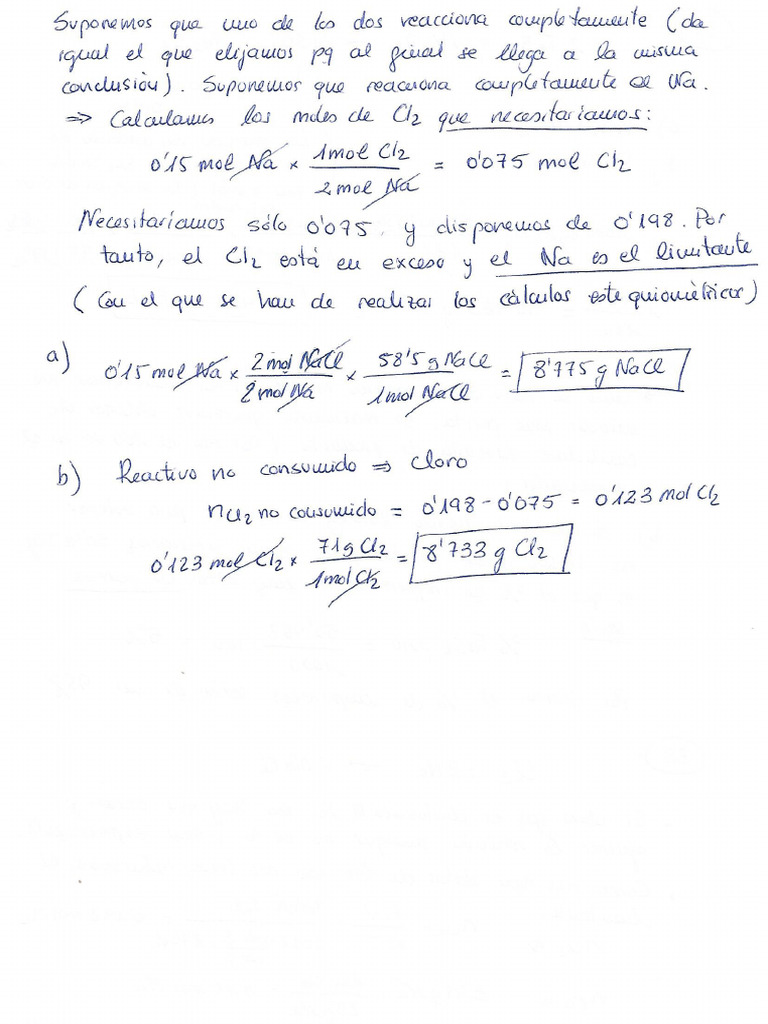 Suponemos que uno de los dos reacciona completamente (da
igual el que elijamos pq al final se llega a la misma
conclusión). Suponemos que reacciona completamente el Na.
⇒ Calculamos los moles de Cl2 que necesitaríamos:
0'15 mol Na × 1mol Cl2 / 2 mol Na = 0'075 mol Cl2
Necesitaríamos sólo 0'075, y disponemos de 0'198. Por
tanto, el Cl2 está en exceso y el Na es el limitante
(Con el que se han de realizar los cálculos estequiométricos)
a) 0'15 mol Na × 2 mol NaCl / 2 mol Na × 58'5 g NaCl / 1mol NaCl = 8'775 g NaCl
b) Reactivo no consumido ⇒ cloro
nCl2 no consumido = 0'198 - 0'075 = 0'123 mol Cl2
0'123 mol Cl2 × 71g Cl2 / 1mol Cl2 = 8'733 g Cl2